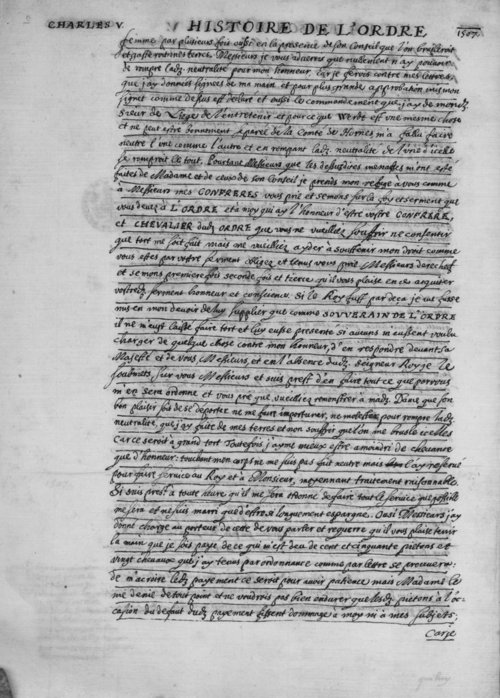 CHARLES V. HISTOIRE DE L'ORDRE 1507.
femme par plusieurs fois aussi en la presence de son Conseil que l'on brusleroit
et gasteroit mes terres. Messieurs je vous advertis que nullement n'ay pouvoir
de rompre ladz. neutralité pour mon honneur. Car je servis contre mes lettres,
que j'ay données signées de ma main et pour plus grande approbation mis mon
signet comme dessus est declaré et aussi le commandement que j'ay de monda.
Sieur de Liege de l'entretenir et pource que Werdt est une mesme chose
et ne peut estre bonnement separée de la Comté de Hornes m'a fallu faire
neutre l'une comme l'autre et en rompant ladz. neutralité de l'une d'icelles
se romproit le tout. Pourtant Messieurs que les dessusdites menasses m'ont esté
faites de Madame et de ceux de son Conseil je prends mon refuge à vous comme
à Messieurs mes CONFRERES vous prie et semons sur la foy et serment que
vous devez à L'ORDRE et à moy qui ay l'honneur d'estre vostre CONFRERE,
et CHEVALIER dudz ORDRE que vous ne vueillez souffrir ne consentir
que tort me soit fait mais me vueillez ayder à soustenir mon droit comme
vous estes par vostre serment obligez et tenus vous prie Messieurs derechef
et semons premiere fois seconde fois et tierce qu'il vous plaise en ces acquiter
vos serment honneur et conscience. Si le Roy fust par deça je me fusse
mis en mon devoir de luy supplier que comme SOUVERAIN DE L'ORDRE
il ne m'eust laissé faire tort et luy eusse presenté si aucuns m'eussent voulu
charger de quelque chose contre mon honneur, d'en respondre devant sa
Majesté et de vous Messieurs, et en l'absence dudz. Seigneur Roy je le
soubmets sur vous Messieurs et suis prest d'en faire tout ce que par vous
m'en sera ordonné et vous prie que vueilliez remonstrer à madz. Dame que son
bon plaisir soit de se deporter ne me faire importuner, ne molester pour rompre ladz
neutralité, que j'ay faite de mes terres et non souffrir qu'on me brusle icelles
Car ce seroit à grand tort. Toutesfois j'ayme mieux estre amoindri de chevance
que d'honneur: touchant mon corps ne me suis pas fait neutre mais l'ay reservé
pour faire service au Roy et à Monsieur, moyennant traitement raisonnable.
Si suis prest à toute heure qu'il me sera ordonné de faire tout le service que possible
me sera et ne suis marri que d'estre si longuement espargné. Aussi Messieurs j'ay
donné charge au porteur de cette de vous parler et requerir qu'il vous plaise tenir
la main que je sois payé de ce qui m'est deu de cent et cinquante pietons et
vingt chevaux que j'ay tenus par ordonnance comme par lettre se prouvera:
de m'acroire ledz payement ce seroit pour avoir patience mais Madame le
me denie de tout point et ne voudrois pas bien endurer que lesdz pietons à l'oc-
casion du defaut dudz payement fissent dommage à moy ni à mes subjets;
Car je